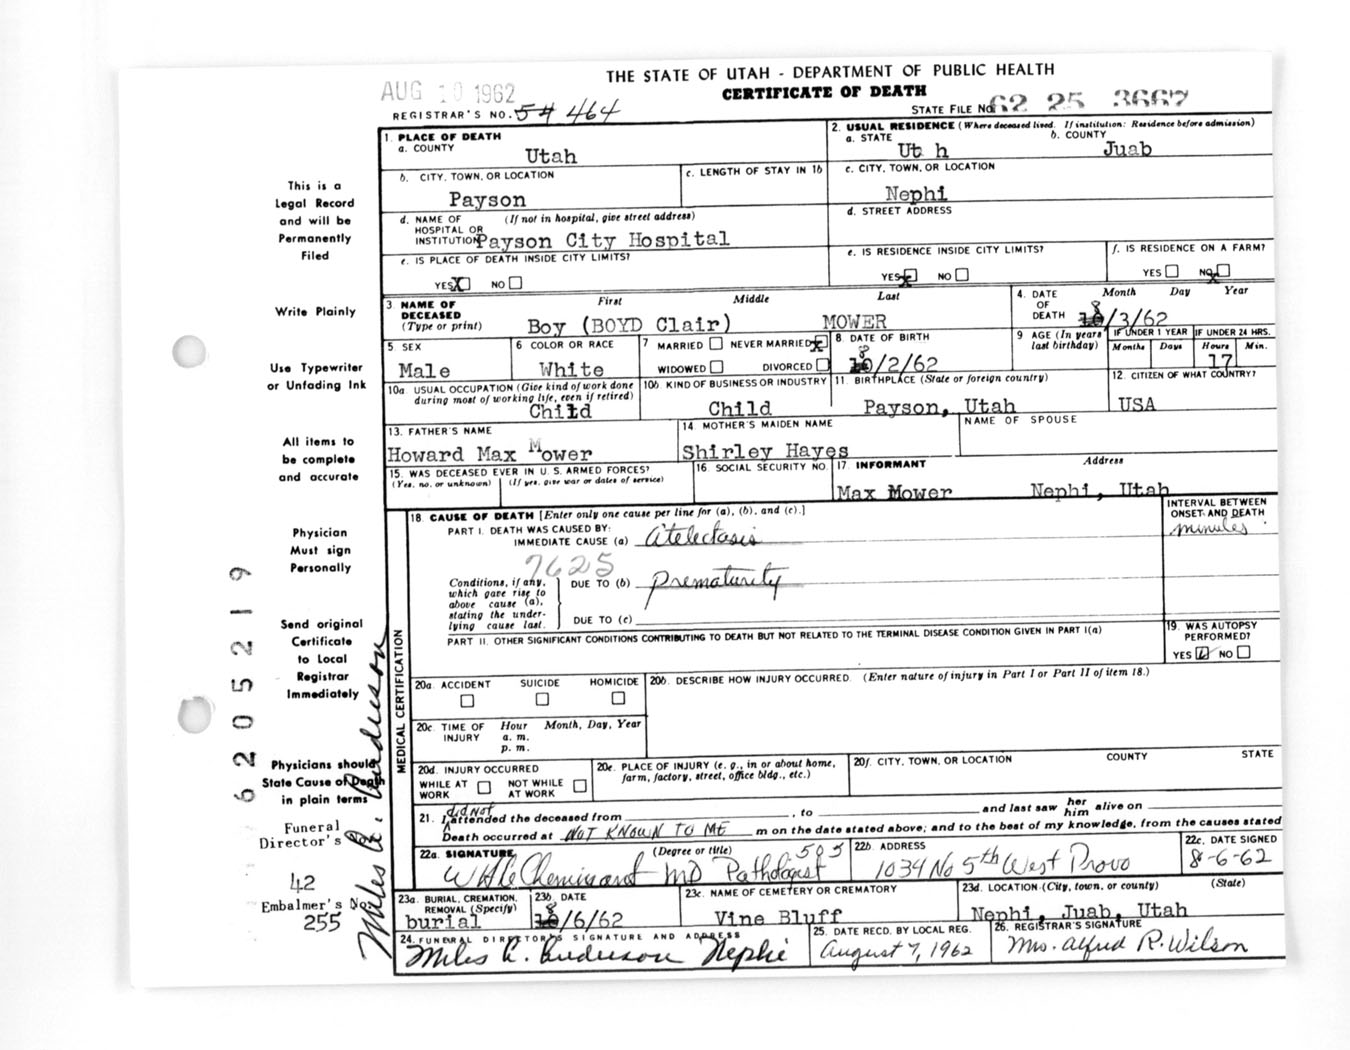 THE STATE OF UTAH - DEPARTMENT OF PUBLIC HEALTH
CERTIFICATE OF DEATH
AUG 10 1962
REGISTRAR'S NO. 54 464
STATE FILE NO. 62 25 3667
1. PLACE OF DEATH
a. COUNTY
Utah
2. USUAL RESIDENCE (Where deceased lived. If institution: Residence before admission)
a. STATE b. COUNTY
Ut h Juab
b. CITY, TOWN, OR LOCATION
Payson
c. LENGTH OF STAY IN 1b
c. CITY, TOWN, OR LOCATION
Nephi
d. NAME OF HOSPITAL OR INSTITUTION (If not in hospital, give street address)
Payson City Hospital
d. STREET ADDRESS
e. IS PLACE OF DEATH INSIDE CITY LIMITS?
YES X NO
e. IS RESIDENCE INSIDE CITY LIMITS?
YES X NO
f. IS RESIDENCE ON A FARM?
YES NO X
3 NAME OF DECEASED (Type or print)
First Middle Last
Boy (BOYD Clair) MOWER
4. DATE OF DEATH Month Day Year
8
10/3/62
5 SEX
Male
6 COLOR OR RACE
White
7 MARRIED NEVER MARRIED X
WIDOWED DIVORCED
8 DATE OF BIRTH
8
10/2/62
9 AGE (In years last birthday)
IF UNDER 1 YEAR IF UNDER 24 HRS.
Months Days Hours Min.
17
10a. USUAL OCCUPATION (Give kind of work done during most of working life, even if retired)
Child
10b. KIND OF BUSINESS OR INDUSTRY
Child
11. BIRTHPLACE (State or foreign country)
Payson, Utah
12. CITIZEN OF WHAT COUNTRY?
USA
13. FATHER'S NAME
Howard Max Mower
14. MOTHER'S MAIDEN NAME
Shirley Hayes
NAME OF SPOUSE
15. WAS DECEASED EVER IN U. S. ARMED FORCES?
(Yes, no, or unknown) (If yes, give war or dates of service)
16. SOCIAL SECURITY NO.
17. INFORMANT Address
Max Mower Nephi, Utah
MEDICAL CERTIFICATION
18. CAUSE OF DEATH [Enter only one cause per line for (a), (b), and (c).]
INTERVAL BETWEEN ONSET AND DEATH
PART I. DEATH WAS CAUSED BY:
IMMEDIATE CAUSE (a) Atelectasis
minutes
7625
Conditions, if any, which gave rise to above cause (a), stating the underlying cause last.
DUE TO (b) Prematurity
DUE TO (c)
PART II. OTHER SIGNIFICANT CONDITIONS CONTRIBUTING TO DEATH BUT NOT RELATED TO THE TERMINAL DISEASE CONDITION GIVEN IN PART I(a)
19. WAS AUTOPSY PERFORMED?
YES NO
20a. ACCIDENT SUICIDE HOMICIDE
20b. DESCRIBE HOW INJURY OCCURRED. (Enter nature of injury in Part I or Part II of item 18.)
20c. TIME OF INJURY Hour Month, Day, Year
a. m.
p. m.
20d. INJURY OCCURRED
WHILE AT WORK NOT WHILE AT WORK
20e. PLACE OF INJURY (e. g., in or about home, farm, factory, street, office bldg., etc.)
20f. CITY, TOWN, OR LOCATION COUNTY STATE
21. I did not attended the deceased from , to and last saw her him alive on
Death occurred at NOT KNOWN TO ME m on the date stated above; and to the best of my knowledge, from the causes stated
22a. SIGNATURE (Degree or title) 505
MD Pathologist
22b. ADDRESS
1034 No 5th West Provo
22c. DATE SIGNED
8-6-62
23a. BURIAL, CREMATION, REMOVAL (Specify)
burial
23b. DATE
8
10/6/62
23c. NAME OF CEMETERY OR CREMATORY
Vine Bluff
23d. LOCATION (City, town, or county) (State)
Nephi, Juab, Utah
24. FUNERAL DIRECTOR'S SIGNATURE AND ADDRESS
Miles A. Anderson Nephi
25. DATE RECD. BY LOCAL REG.
August 7, 1962
26. REGISTRAR'S SIGNATURE
Mrs. Alfred R. Wilson
This is a
Legal Record
and will be
Permanently
Filed
Write Plainly
Use Typewriter
or Unfading Ink
All items to
be complete
and accurate
Physician
Must sign
Personally
Send original
Certificate
to Local
Registrar
Immediately
Physicians should
State Cause of Death
in plain terms
Funeral
Director's
42
Embalmer's No
255
Miles A. Anderson
6205219